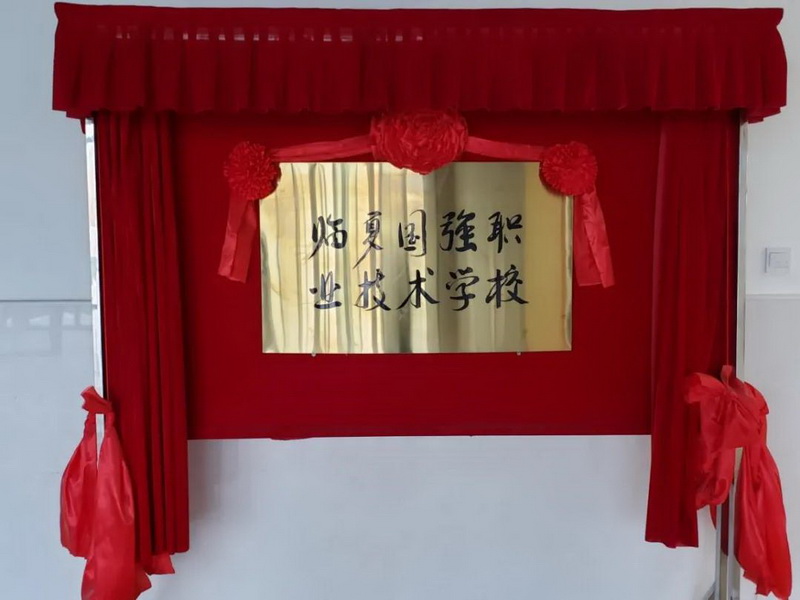 临夏国强职
业技术学校